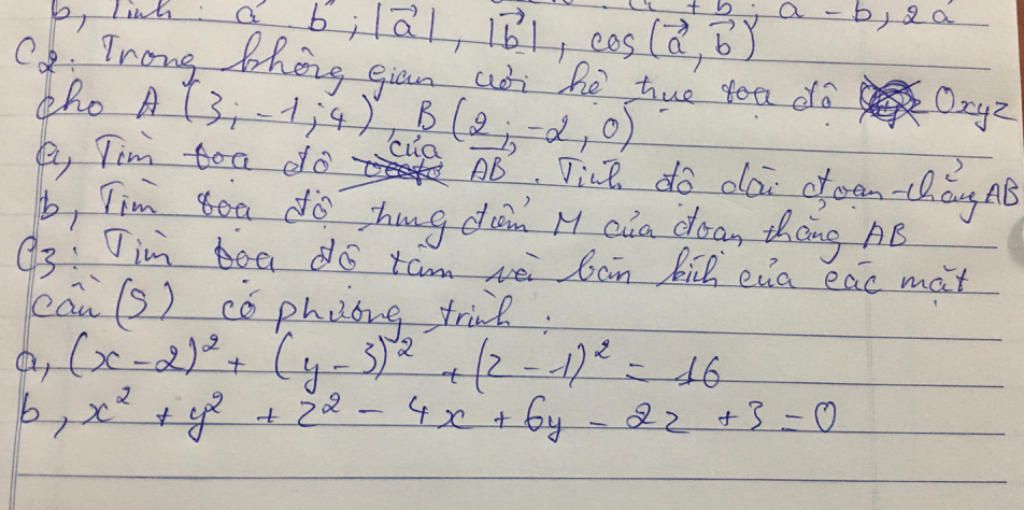 b, Tính : a⃗ b⃗ ; |a⃗| , |b⃗| , cos (a⃗, b⃗) a + b ; a - b, 2a
C2: Trong không gian với hệ trục toạ độ Oxyz
cho A (3; -1; 4), B (2; -2, 0)
a, Tìm toạ độ của AB. Tính độ dài đoạn thẳng AB
b, Tìm toạ độ trung điểm M của đoạn thẳng AB
C3: Tìm toạ độ tâm và bán kính của các mặt
cầu (S) có phương trình :
a, (x-2)² + (y-3)² + (z-1)² = 16
b, x² + y² + z² - 4x + 6y - 2z + 3 = 0